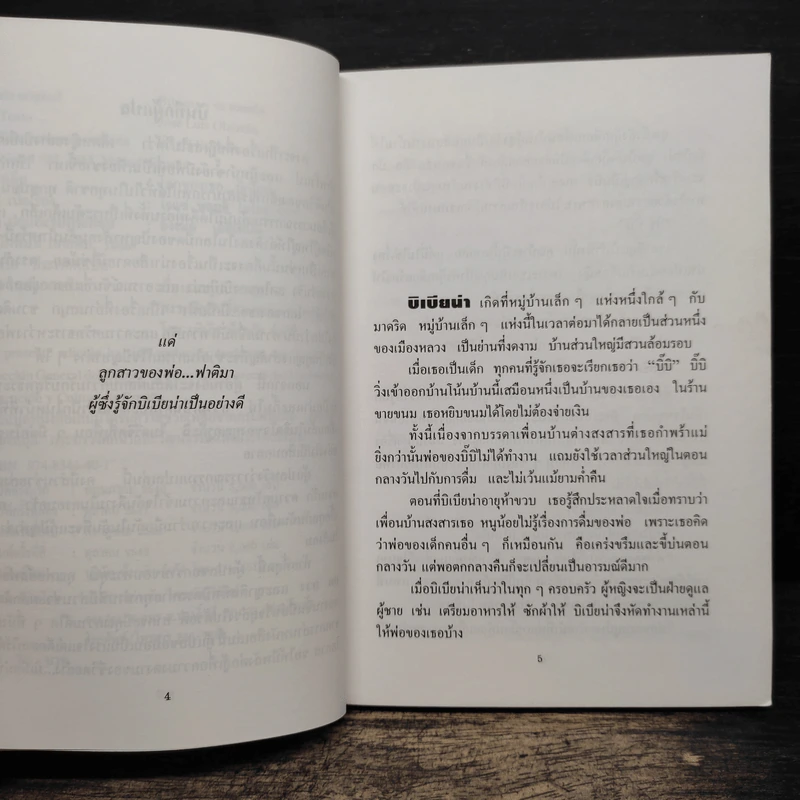 แด่
ลูกสาวของพ่อ...ฟาติมา
ผู้ซึ่งรู้จักบิเบียน่าเป็นอย่างดี
4
บิเบียน่า เกิดที่หมู่บ้านเล็ก ๆ แห่งหนึ่งใกล้ ๆ กับ
มาดริด หมู่บ้านเล็ก ๆ แห่งนี้ในเวลาต่อมาได้กลายเป็นส่วนหนึ่ง
ของเมืองหลวง เป็นย่านที่งดงาม บ้านส่วนใหญ่มีสวนล้อมรอบ
เมื่อเธอเป็นเด็ก ทุกคนที่รู้จักเธอจะเรียกเธอว่า “บิ๊บิ” บิ๊บิ
วิ่งเข้าออกบ้านโน้นบ้านนี้เสมือนหนึ่งเป็นบ้านของเธอเอง ในร้าน
ขายขนม เธอหยิบขนมได้โดยไม่ต้องจ่ายเงิน
ทั้งนี้เนื่องจากบรรดาเพื่อนบ้านต่างสงสารที่เธอกำพร้าแม่
ยิ่งกว่านั้นพ่อของบิ๊บิไม่ได้ทำงาน แถมยังใช้เวลาส่วนใหญ่ในตอน
กลางวันไปกับการดื่ม และไม่เว้นแม้ยามค่ำคืน
ตอนที่บิเบียน่าอายุห้าขวบ เธอรู้สึกประหลาดใจเมื่อทราบว่า
เพื่อนบ้านสงสารเธอ หนูน้อยไม่รู้เรื่องการดื่มของพ่อ เพราะเธอคิด
ว่าพ่อของเด็กคนอื่น ๆ ก็เหมือนกัน คือเคร่งขรึมและขี้บ่นตอน
กลางวัน แต่พอตกกลางคืนก็จะเปลี่ยนเป็นอารมณ์ดีมาก
เมื่อบิเบียน่าเห็นว่าในทุก ๆ ครอบครัว ผู้หญิงจะเป็นฝ่ายดูแล
ผู้ชาย เช่น เตรียมอาหารให้ ซักผ้าให้ บิเบียน่าจึงหัดทำงานเหล่านี้
ให้พ่อของเธอบ้าง
5